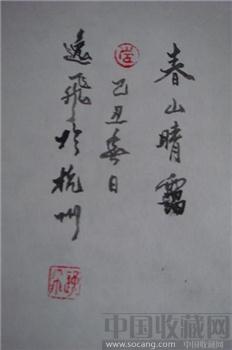 春山晴靄
己丑春日
逺飛於杭州
中国收藏网
www.socang.com 中国收藏网